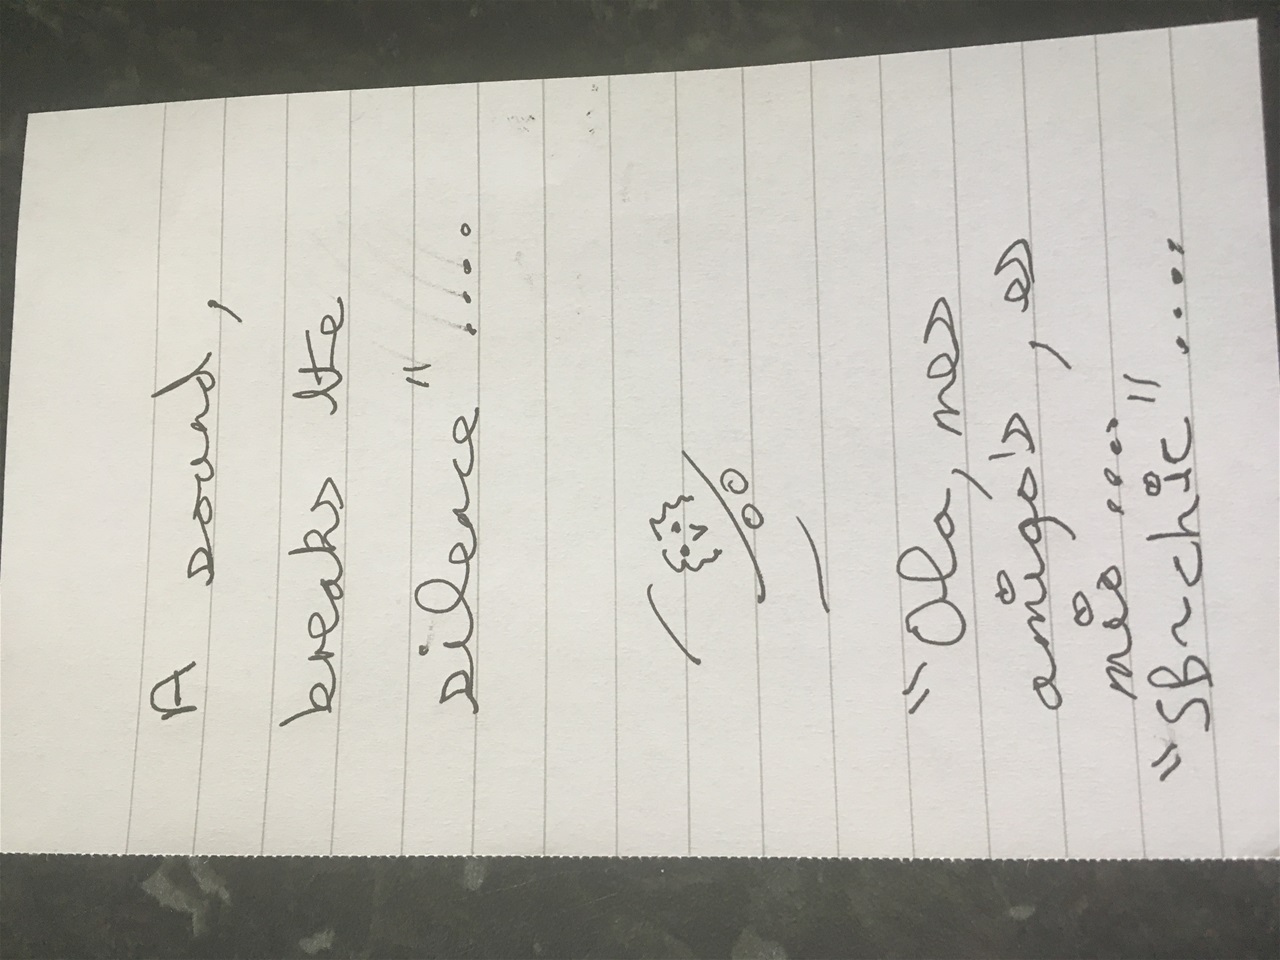 A sound,
breaks the
silence"....
"Ola, mes
amigo's, es
mio.....
"SBrchic"....